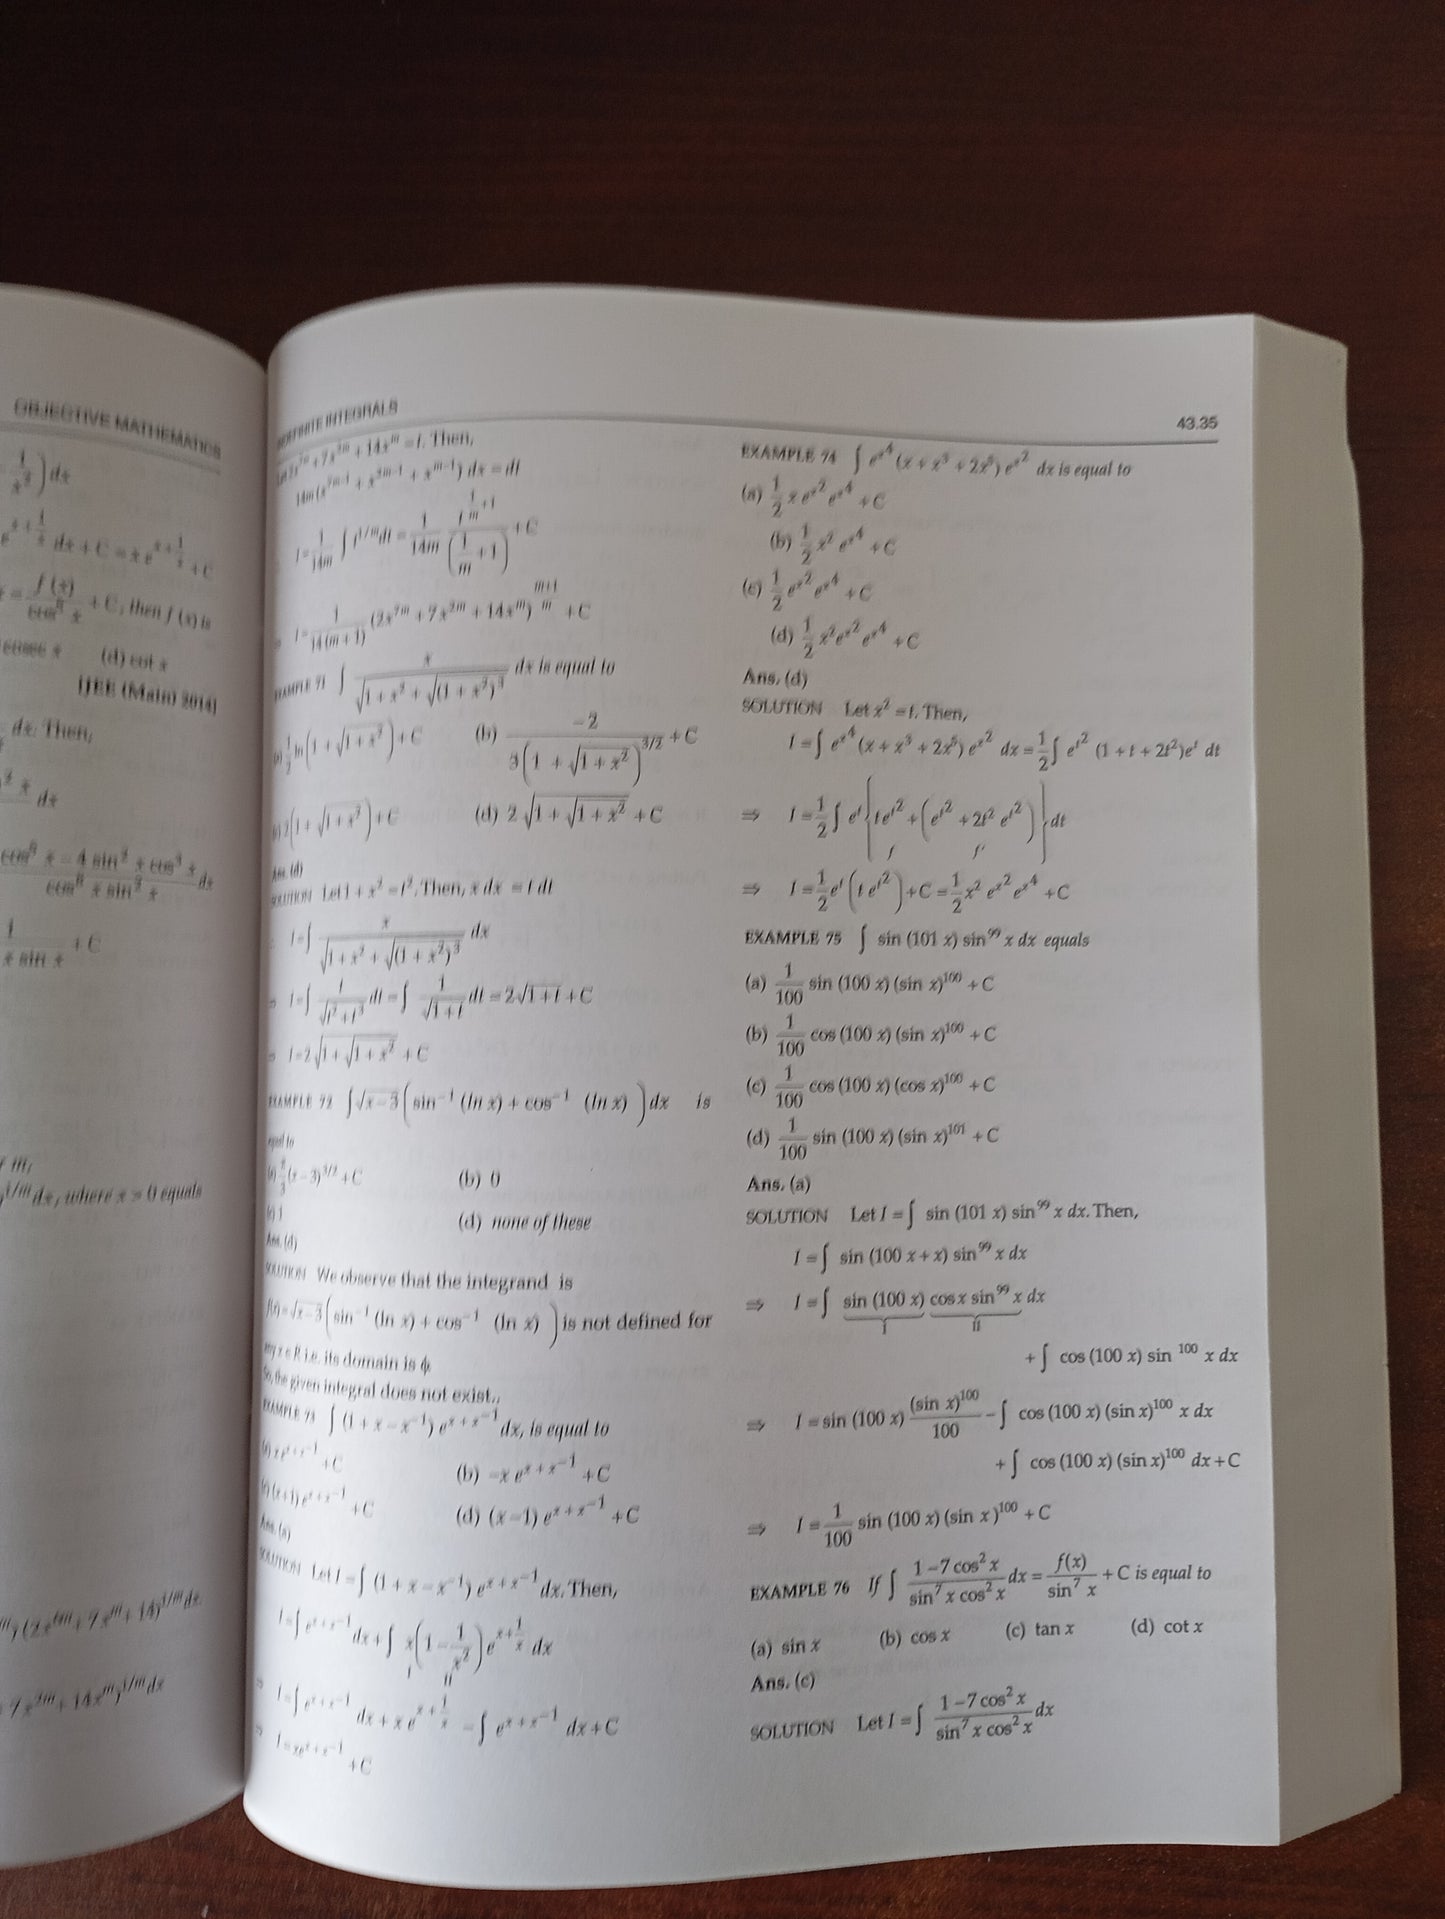 OBJECTIVE MATHEMATICS
1/x² ) dx
e^(x+1/x) dx + C = x e^(x+1/x) + C
= f(x)/cos⁸ x + C, then f(x) is
cosec x (d) cot x
[JEE (Main) 2014]
dx. Then,
dx
cos⁸ x – 4 sin² x cos³ x / cos⁸ x sin² x dx
1 / x sin x + C
^(1/m) dx, where x > 0 equals
(2x^(2m) + 7x^m + 14)^(1/m) dx
+ 7x^(2m) + 14x^m)^(1/m) dx
INDEFINITE INTEGRALS
43.35
Let 2x^(7m) + 7x^(2m) + 14x^m = t. Then,
14m (x^(7m–1) + x^(2m–1) + x^(m–1)) dx = dt
I = 1/14m ∫ t^(1/m) dt = 1/14m t^(1/m + 1) / (1/m + 1) + C
⇒ I = 1/14(m+1) (2x^(7m) + 7x^(2m) + 14x^m)^((m+1)/m) + C
EXAMPLE 71 ∫ x / √(1 + x² + √((1 + x²)³)) dx is equal to
(a) 1/2 ln (1 + √(1 + x²)) + C (b) –2 / 3(1 + √(1 + x²))^(3/2) + C
(c) 2(1 + √(1 + x²)) + C (d) 2√(1 + √(1 + x²)) + C
Ans. (d)
SOLUTION Let 1 + x² = t². Then, x dx = t dt
∴ I = ∫ x / √(1 + x² + √((1 + x²)³)) dx
⇒ I = ∫ t / √(t² + t³) dt = ∫ 1 / √(1 + t) dt = 2√(1 + t) + C
⇒ I = 2√(1 + √(1 + x²)) + C
EXAMPLE 72 ∫ √(x – 3) ( sin⁻¹ (ln x) + cos⁻¹ (ln x) ) dx is
equal to
(a) π/3 (x – 3)^(3/2) + C (b) 0
(c) 1 (d) none of these
Ans. (d)
SOLUTION We observe that the integrand is
f(x) = √(x – 3) ( sin⁻¹ (ln x) + cos⁻¹ (ln x) ) is not defined for
any x ∈ R i.e. its domain is ϕ
So, the given integral does not exist..
EXAMPLE 73 ∫ (1 + x – x⁻¹) e^(x + x⁻¹) dx, is equal to
(a) x e^(x + x⁻¹) + C (b) –x e^(x + x⁻¹) + C
(c) (x + 1) e^(x + x⁻¹) + C (d) (x – 1) e^(x + x⁻¹) + C
Ans. (a)
SOLUTION Let I = ∫ (1 + x – x⁻¹) e^(x + x⁻¹) dx. Then,
I = ∫ e^(x + x⁻¹) dx + ∫ x (1 – 1/x²) e^(x + 1/x) dx
I II
⇒ I = ∫ e^(x + x⁻¹) dx + x e^(x + 1/x) – ∫ e^(x + x⁻¹) dx + C
⇒ I = xe^(x + x⁻¹) + C
EXAMPLE 74 ∫ e^(x⁴) (x + x³ + 2x⁵) e^(x²) dx is equal to
(a) 1/2 x e^(x²) e^(x⁴) + C
(b) 1/2 x² e^(x⁴) + C
(c) 1/2 e^(x²) e^(x⁴) + C
(d) 1/2 x² e^(x²) e^(x⁴) + C
Ans. (d)
SOLUTION Let x² = t. Then,
I = ∫ e^(x⁴) (x + x³ + 2x⁵) e^(x²) dx = 1/2 ∫ e^(t²) (1 + t + 2t²) e^t dt
⇒ I = 1/2 ∫ e^t { t e^(t²) + ( e^(t²) + 2t² e^(t²) ) } dt
f f'
⇒ I = 1/2 e^t ( t e^(t²) ) + C = 1/2 x² e^(x²) e^(x⁴) + C
EXAMPLE 75 ∫ sin (101 x) sin⁹⁹ x dx equals
(a) 1/100 sin (100 x) (sin x)¹⁰⁰ + C
(b) 1/100 cos (100 x) (sin x)¹⁰⁰ + C
(c) 1/100 cos (100 x) (cos x)¹⁰⁰ + C
(d) 1/100 sin (100 x) (sin x)¹⁰¹ + C
Ans. (a)
SOLUTION Let I = ∫ sin (101 x) sin⁹⁹ x dx. Then,
I = ∫ sin (100 x + x) sin⁹⁹ x dx
⇒ I = ∫ sin (100 x) cos x sin⁹⁹ x dx
I II
+ ∫ cos (100 x) sin ¹⁰⁰ x dx
⇒ I = sin (100 x) (sin x)¹⁰⁰/100 – ∫ cos (100 x) (sin x)¹⁰⁰ x dx
+ ∫ cos (100 x) (sin x)¹⁰⁰ dx + C
⇒ I = 1/100 sin (100 x) (sin x)¹⁰⁰ + C
EXAMPLE 76 If ∫ 1 – 7 cos² x / sin⁷ x cos² x dx = f(x)/sin⁷ x + C is equal to
(a) sin x (b) cos x (c) tan x (d) cot x
Ans. (c)
SOLUTION Let I = ∫ 1 – 7 cos² x / sin⁷ x cos² x dx